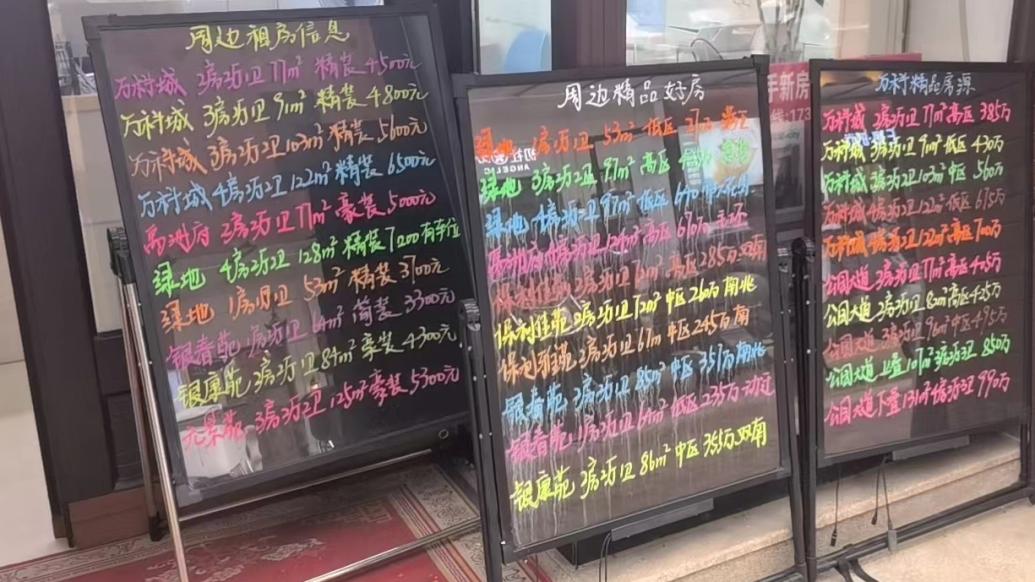 周边租房信息
万科城 3房2厅1卫 77m² 精装 4500元
万科城 3房2厅1卫 91m² 精装 4800元
万科城 3房2厅2卫 103m² 精装 5600元
万科城 4房2厅2卫 122m² 精装 6500元
2房2厅1卫 77m² 豪装 5000元
绿地 4房2厅2卫 128m² 精装 7200 有车位
绿地 1房1厅1卫 53m² 精装 3700元
银春苑 1房2厅1卫 64m² 简装 3300元
银康苑 3房2厅1卫 84m² 豪装 4300元
3房2厅2卫 125m² 豪装 5300元
周边精品好房
绿地 1房2厅1卫 53m² 低区
绿地 3房2厅2卫 97m² 高区
绿地 4房2厅2卫 97m² 低区 670
4房2厅2卫 124m² 高区 670万
保利佳苑 2房2厅1卫 高区 285万 双南
保利佳苑 2房2厅1卫 72m² 中区 260万 南北
保利雅苑 2房2厅1卫 67m² 中区 245万 南
银春苑 2房2厅1卫 85m² 中区 357万 南北
银春苑 1房2厅1卫 64m² 低区 235万
银康苑 3房2厅1卫 86m² 中区 355万 双南
万科精品房源
万科城 2房2厅1卫 77m² 高区 385万
万科城 3房2厅1卫 91m² 低区 430万
万科城 3房2厅2卫 103m² 中区 560万
万科城 4房2厅2卫 122m² 低区 675万
万科城 4房2厅2卫 122m² 高区 700万
公园大道 3房2厅1卫 77m² 高区 405万
公园大道 2房2厅1卫 82m² 高区 425万
公园大道 3房2厅1卫 96m² 中区 495万
公园大道 上叠 107m² 3房2厅3卫 850万
公园大道 下叠 131m² 4房2厅3卫 990万
手新房
线:173
ANGELIC